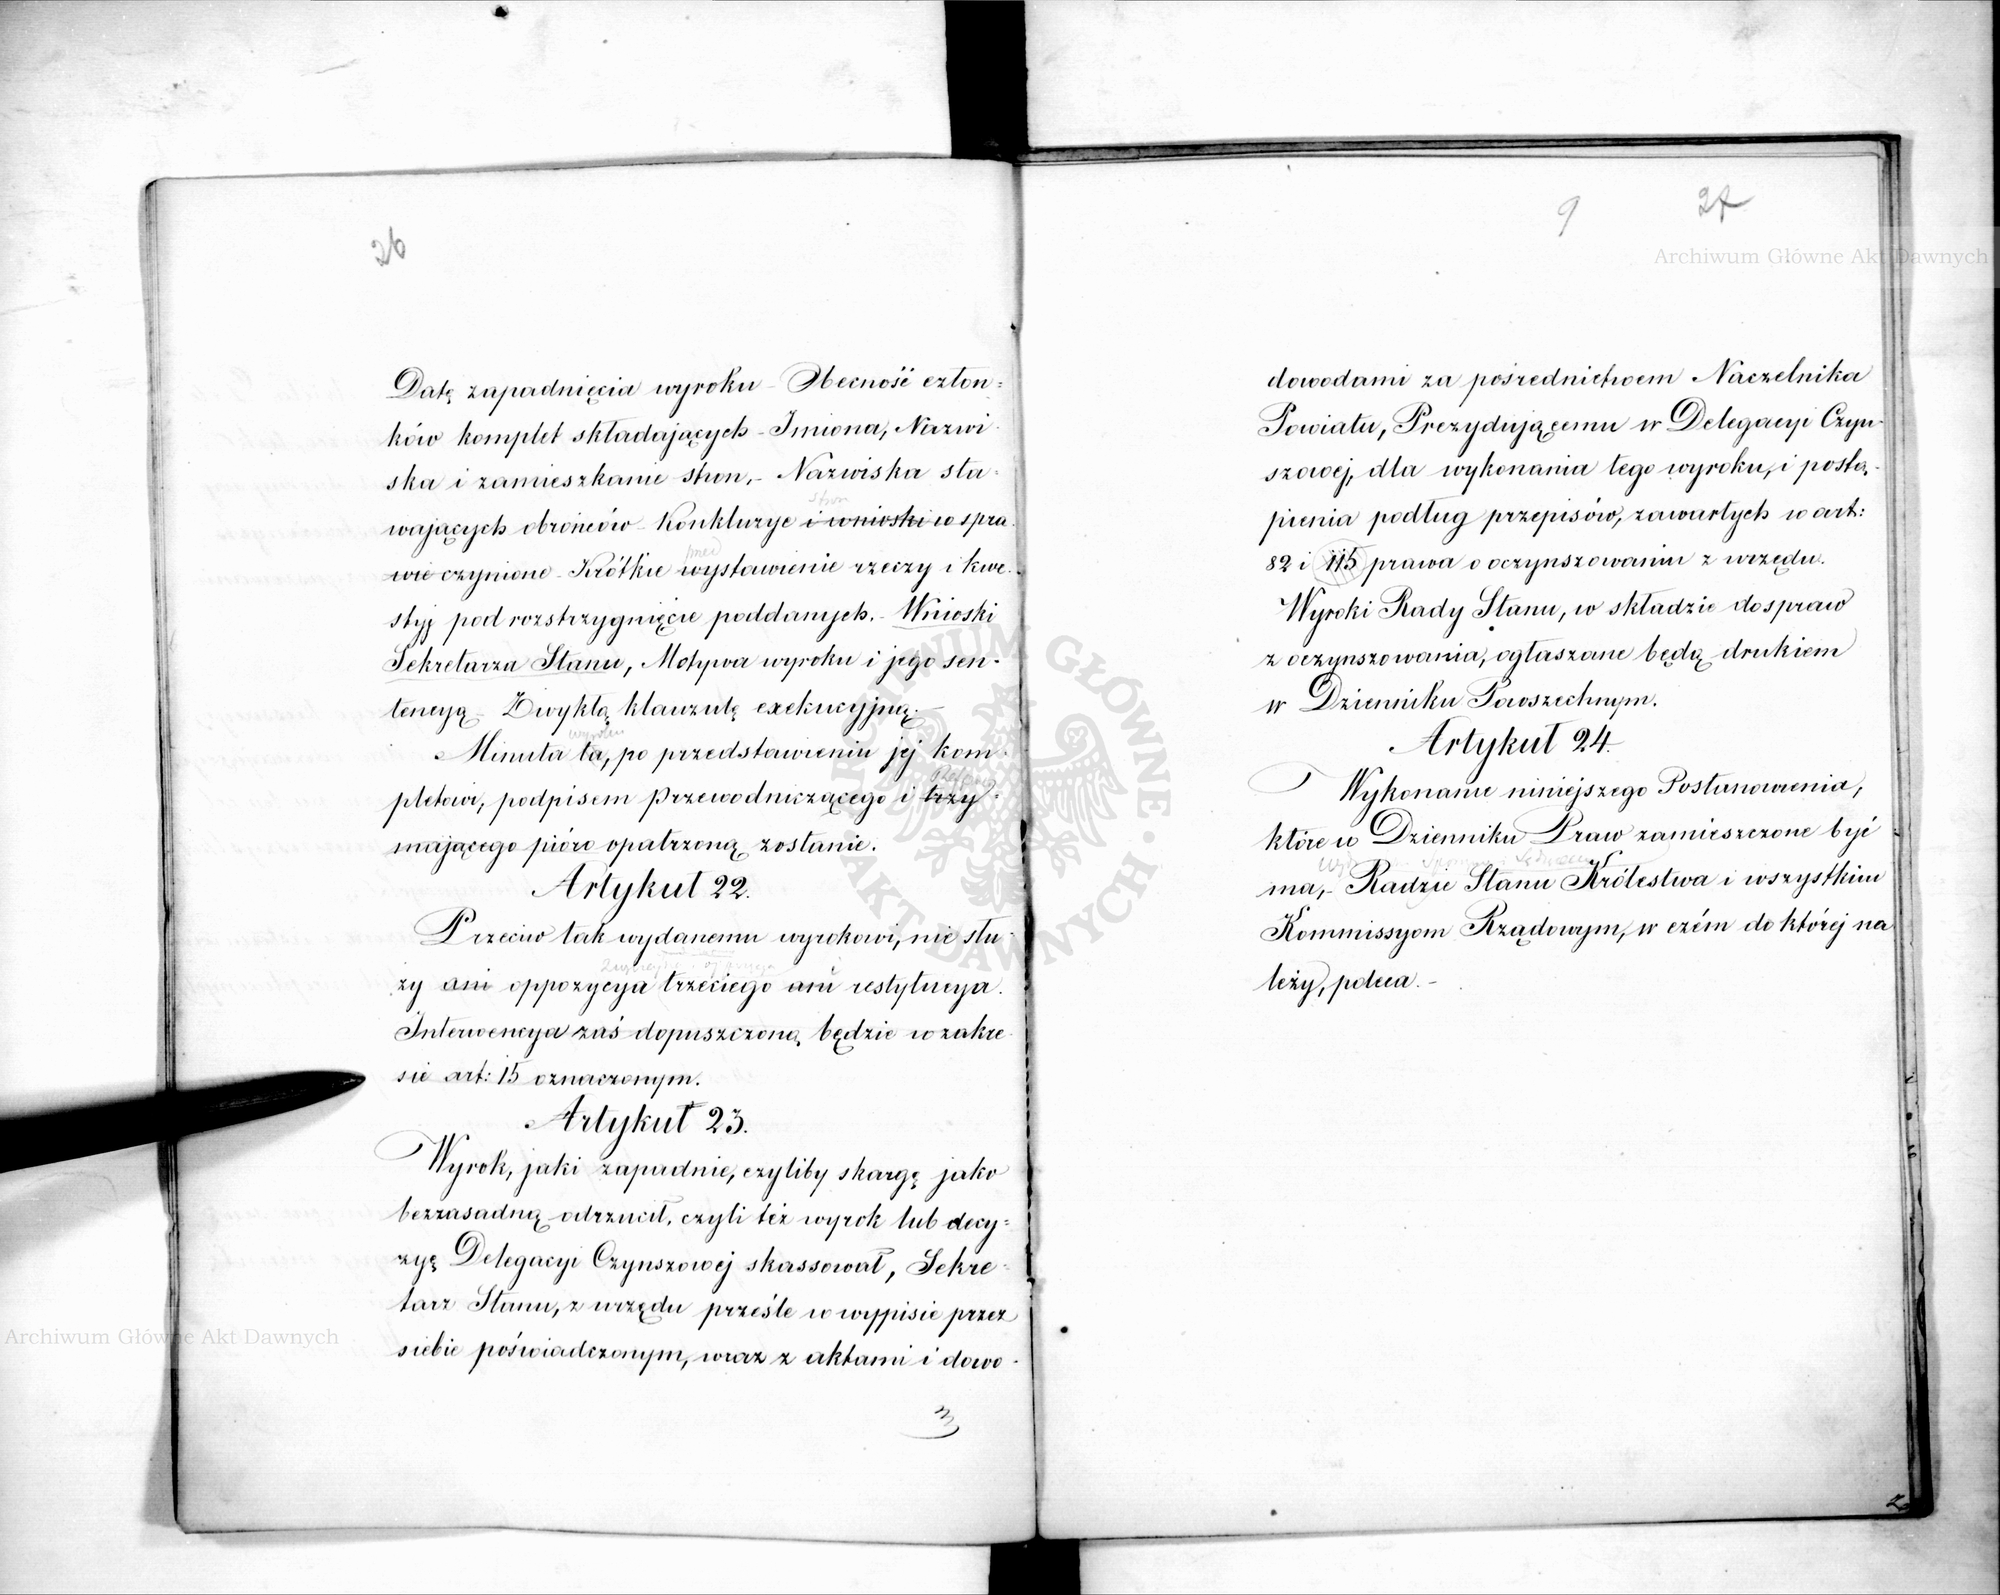 26
Datę zapadnięcia wyroku – Obecność człon=
ków komplet składających – Imiona, Nazwi-
ska i zamieszkanie stron, – Nazwiska sta-
stron
wających obrońców – Konkluzye i wnioski w spra-
wie czynione – Krótkie wystawienie rzeczy i kwe-
styj pod rozstrzygnięcie poddanych. – Wnioski
Sekretarza Stanu, Motywa wyroku i jego sen-
tencyą – Zwykłą klauzulę exekucyjną. –
wyroku
Minuta ta, po przedstawieniu jej kom-
pletowi, podpisem Przewodniczącego i trzy-
mającego pióro opatrzoną zostanie.
Artykuł 22.
Przeciw tak wydanemu wyrokowi, nie słu-
ży ani oppozycya trzeciego ani restytucya.
Interwencya zaś dopuszczoną będzie w zakre-
sie art: 15 oznaczonym.
Artykuł 23.
Wyrok, jaki zapadnie, czyliby skargę jako
bezzasadną odrzucił, czyli też wyrok lub decy=
zyę Delegacyi Czynszowej skassował, Sekre-
tarz Stanu, z urzędu prześle w wypisie przez
siebie poświadczonym, wraz z aktami i dowo-
3
9 27
dowodami za pośrednictwem Naczelnika
Powiatu, Prezydującemu w Delegacyi Czyn-
szowej, dla wykonania tego wyroku, i postą-
pienia podług przepisów, zawartych w art:
82 i 115 prawa o oczynszowaniu z urzędu.
Wyroki Rady Stanu, w składzie do spraw
z oczynszowania, ogłaszane będą drukiem
w Dzienniku Powszechnym.
Artykuł 24.
Wykonanie niniejszego Postanowienia,
które w Dzienniku Praw zamieszczone być
ma, – Radzie Stanu Królestwa i wszystkim
Kommissyom Rządowym, w czém do której na
leży, poleca. –
Archiwum Główne Akt Dawnych
Archiwum Główne Akt Dawnych
ARCHIWUM GŁÓWNE · AKT DAWNYCH ·